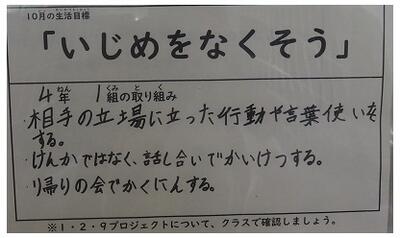 10月の生活目標
「いじめをなくそう」
4年 1組の取り組み
・相手の立場に立った行動や言葉使いを
する。
・けんかではなく、話し合いでかいけつする。
・帰りの会でかくにんする。
※1・2・9プロジェクトについて、クラスで確認しましょう。